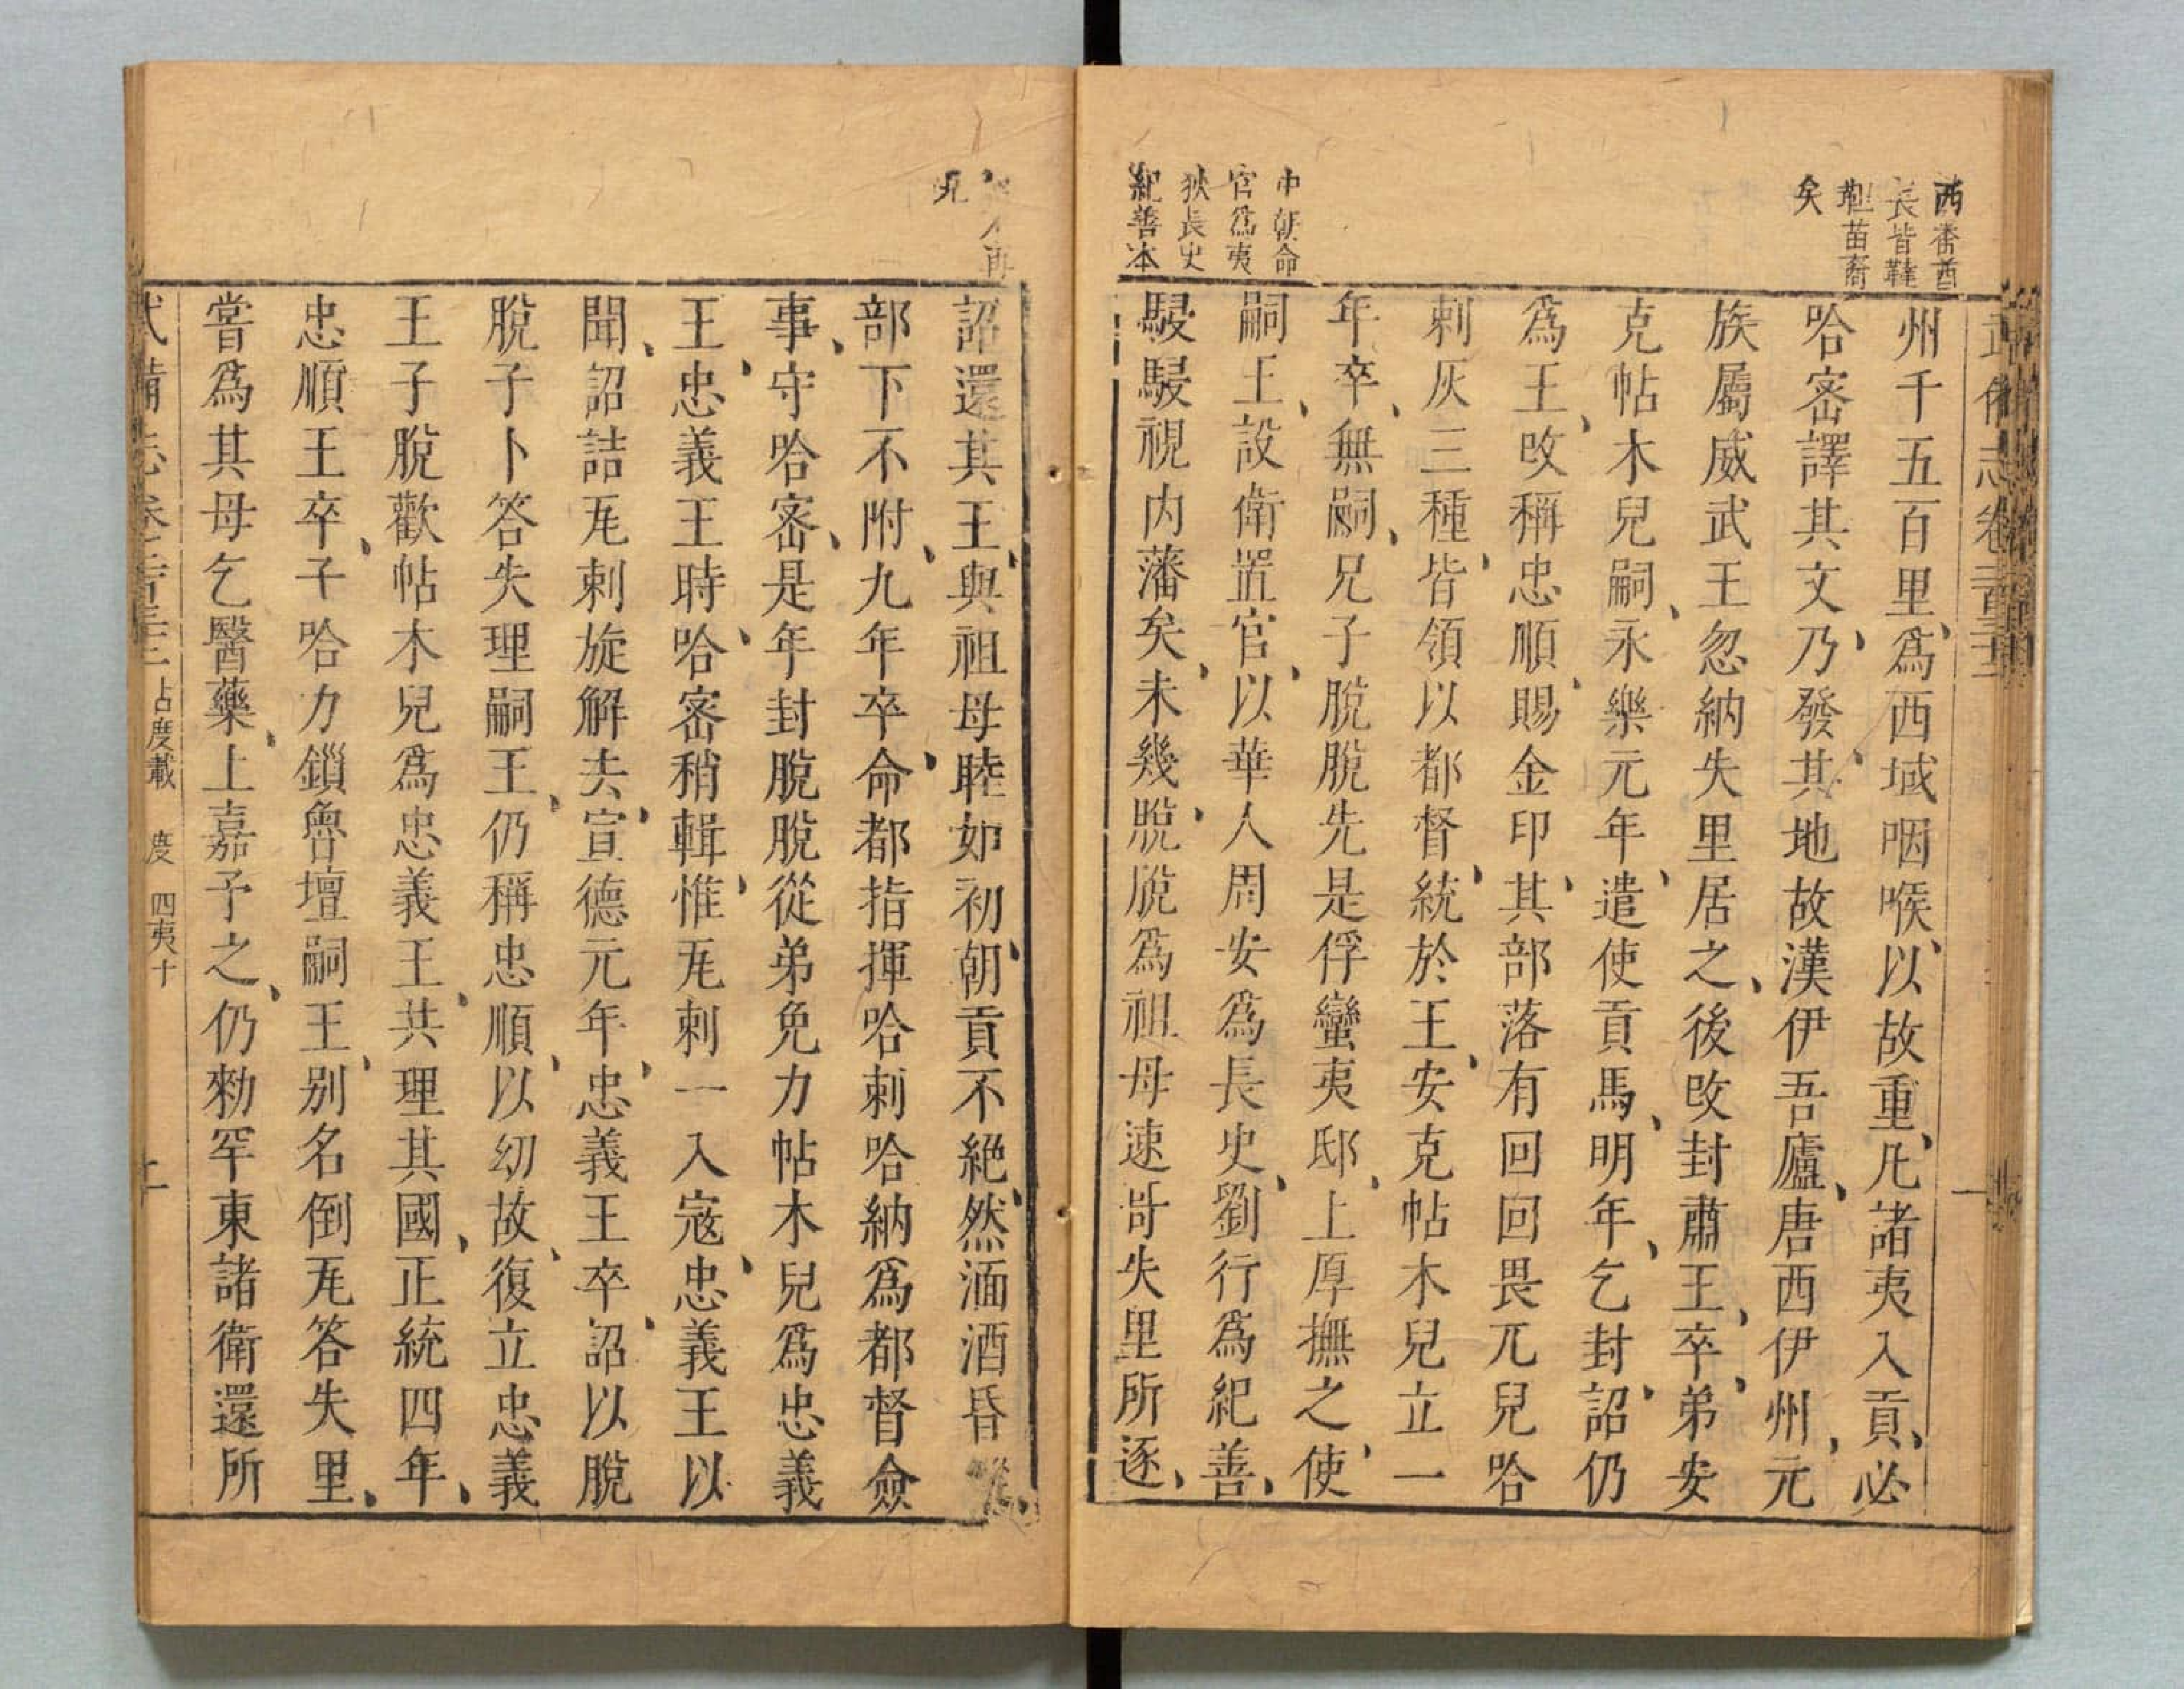 西畨酋
長皆韃
靼苗裔
矣
中朝命
官爲夷
狄長史
紀善本
州千五百里、爲西域咽喉、以故重、凡諸夷入貢、必
哈密譯其文、乃發、其地故漢伊吾廬、唐西伊州、元
族屬威武王忽納失里居之、後改封肅王、卒、弟安
克帖木兒嗣、永樂元年、遣使貢馬、明年、乞封、詔仍
爲王、改稱忠順、賜金印、其部落有回回畏兀兒哈
剌灰三種、皆領以都督、統於王、安克帖木兒立一
年、卒、無嗣、兄子脫脫先是俘蠻夷邸、上厚撫之、使
嗣王、設衛置官、以華人周安爲長史、劉行爲紀善、
駸駸視内藩矣、未幾、脫脫爲祖母速哥失里所逐、
再
詔還其王、與祖母睦如初、朝貢不絶、然湎酒昏
部下不附、九年卒、命都指揮哈剌哈納爲都督僉
事、守哈密、是年封脫脫從弟免力帖木兒爲忠義
王、忠義王時、哈密稍輯、惟瓦剌一入寇、忠義王以
聞、詔詰瓦剌旋解去、宣德元年、忠義王卒、詔以脫
脫子卜答失理嗣王、仍稱忠順、以幼故、復立忠義
王子脫歡帖木兒爲忠義王、共理其國、正統四年、
忠順王卒、子哈力鎻魯壇嗣王、别名倒瓦答失里、
嘗爲其母乞醫藥、上嘉予之、仍勑罕東諸衛還所
武備志卷二百二十三 占度載 度 四夷十 二